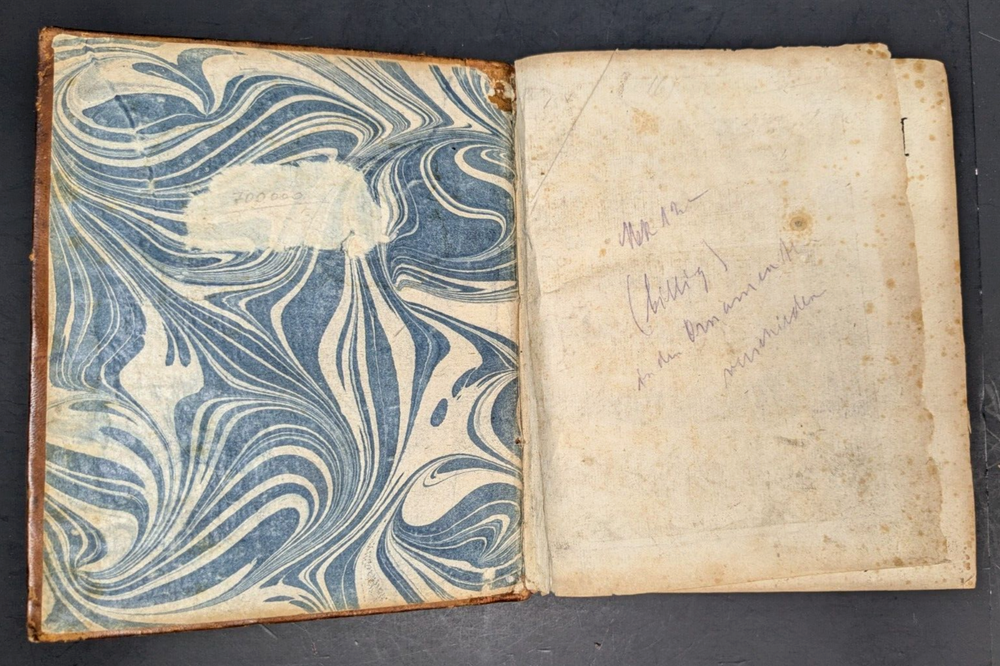 700000
(billig)
in den Ornamenten
verschieden